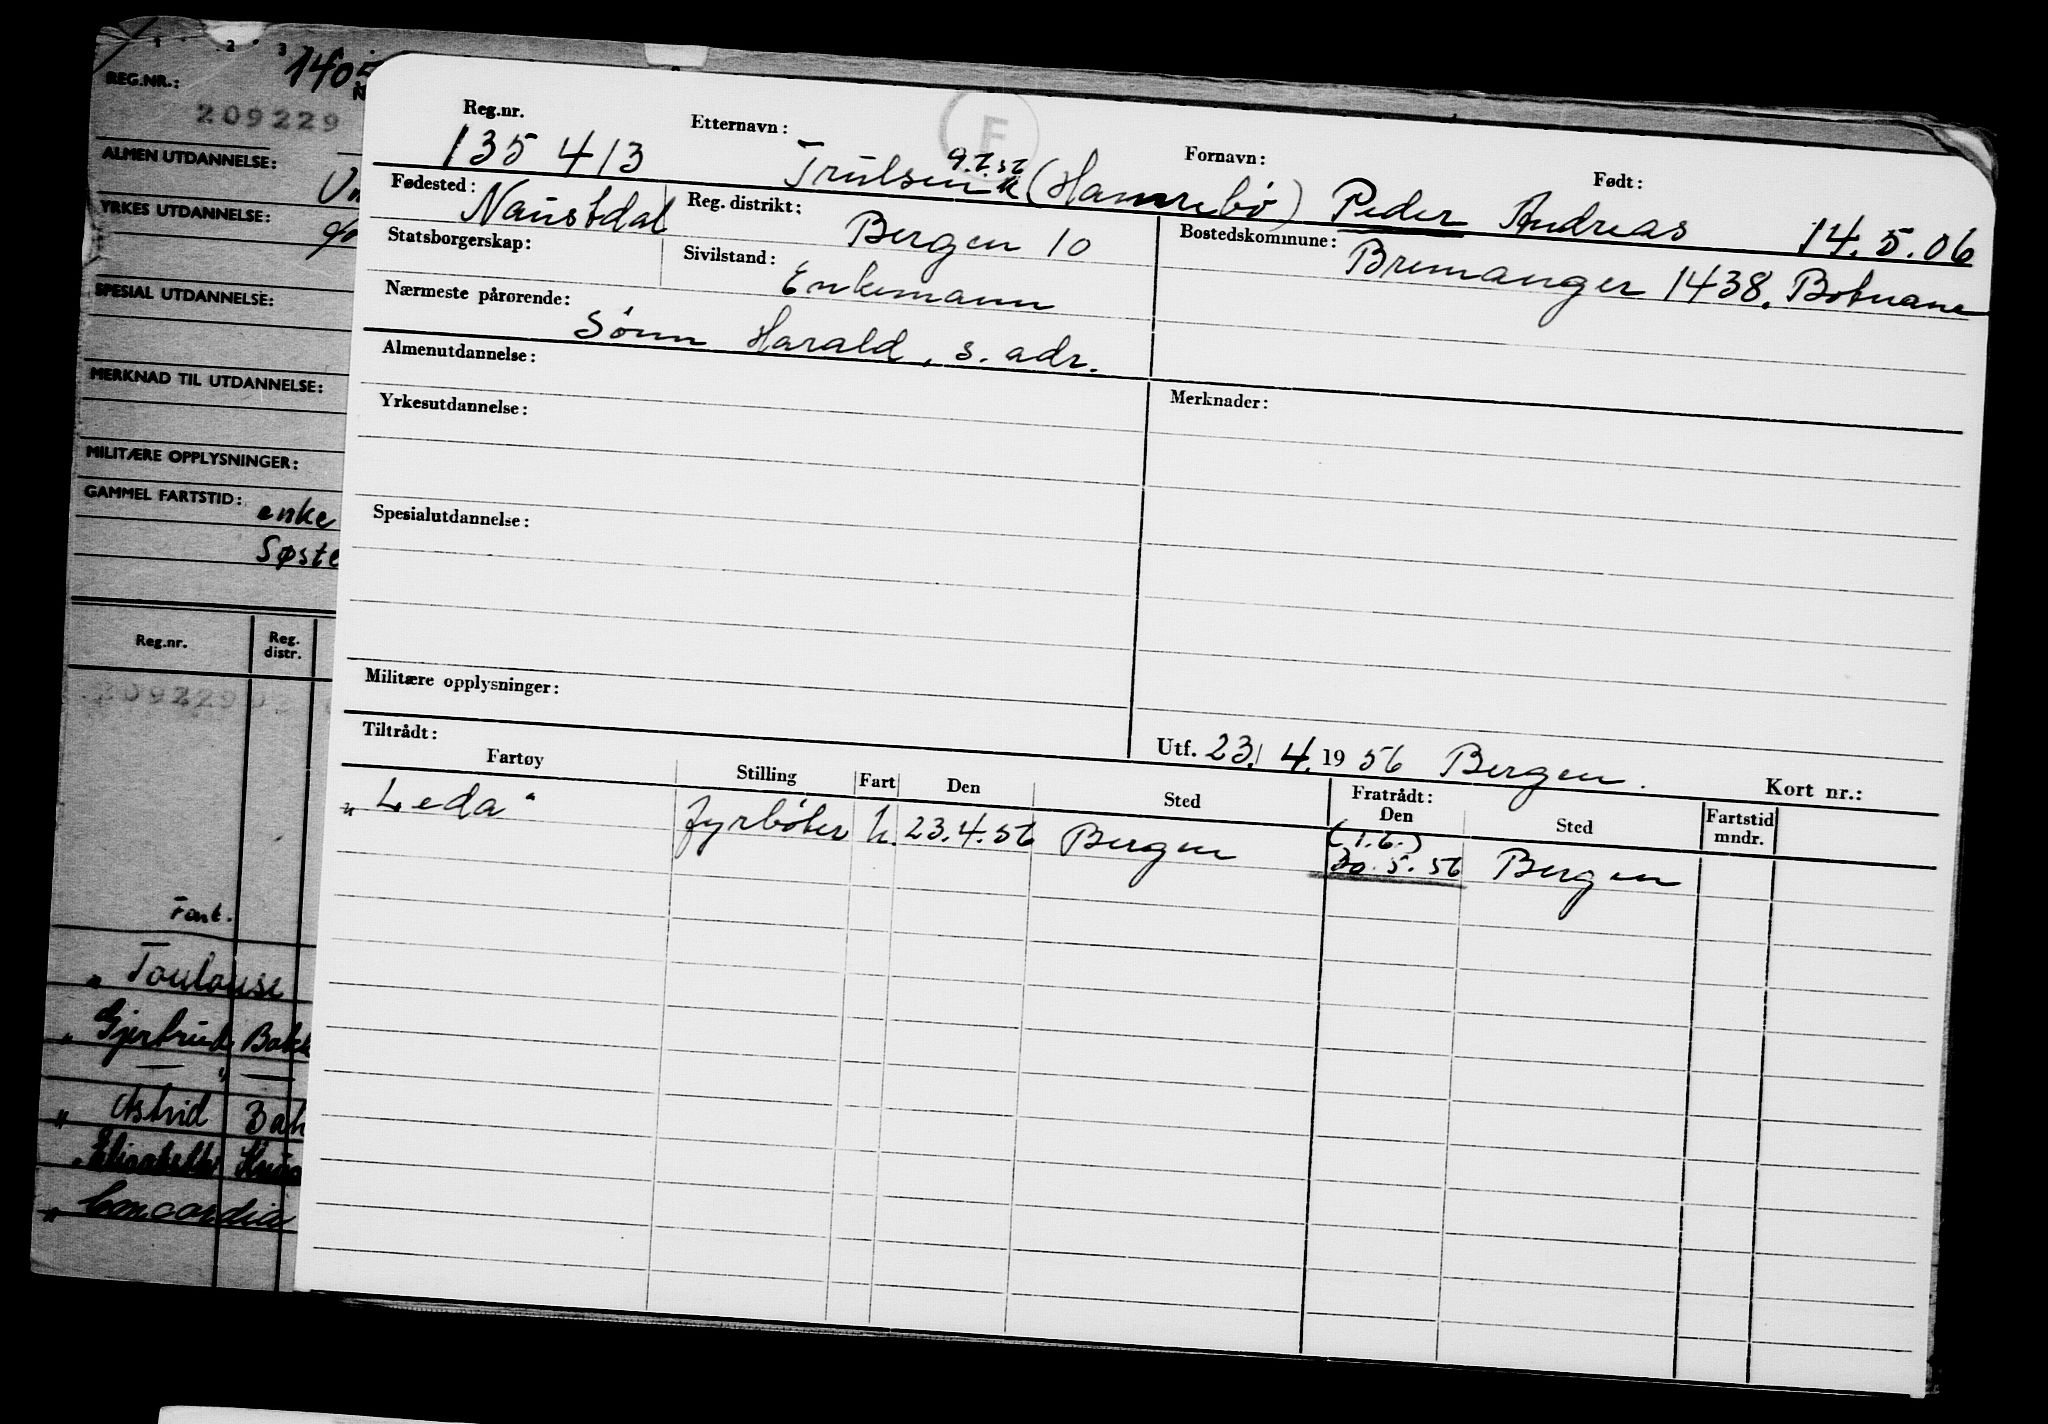 1 2 3
REG.NR.: 1405
209229
ALMEN UTDANNELSE:
YRKES UTDANNELSE:
SPESIAL UTDANNELSE:
MERKNAD TIL UTDANNELSE:
MILITÆRE OPPLYSNINGER:
GAMMEL FARTSTID: enke
Søste
Reg.nr. Reg. distr.
209229 02
Fart.
„ Toulouse
„ Gjertrud Bakk
— „ —
„ Astrid Bak
„ Elisabeth Knu
„ Concordia
F
Reg.nr. Etternavn: Fornavn: Født:
135 413 Trulsen (Hamrebö) Peder Andreas 14.5.06
Fødested: Naustdal Reg. distrikt: Bergen 10 Bostedskommune: Bremanger 1438. Botnane
Statsborgerskap: Sivilstand: Enkemann
Nærmeste pårørende: Sönn Harald, s. adr.
Almenutdannelse:
Yrkesutdannelse: Merknader:
Spesialutdannelse:
Militære opplysninger:
Utf. 23. 4. 19 56 Bergen. Kort nr.:
Tiltrådt: Fratrådt:
Fartøy Stilling Fart Den Sted Den Sted Fartstid mndr.
(1.6.)
„Leda“ fyrböter U. 23.4.56 Bergen 30.5.56 Bergen